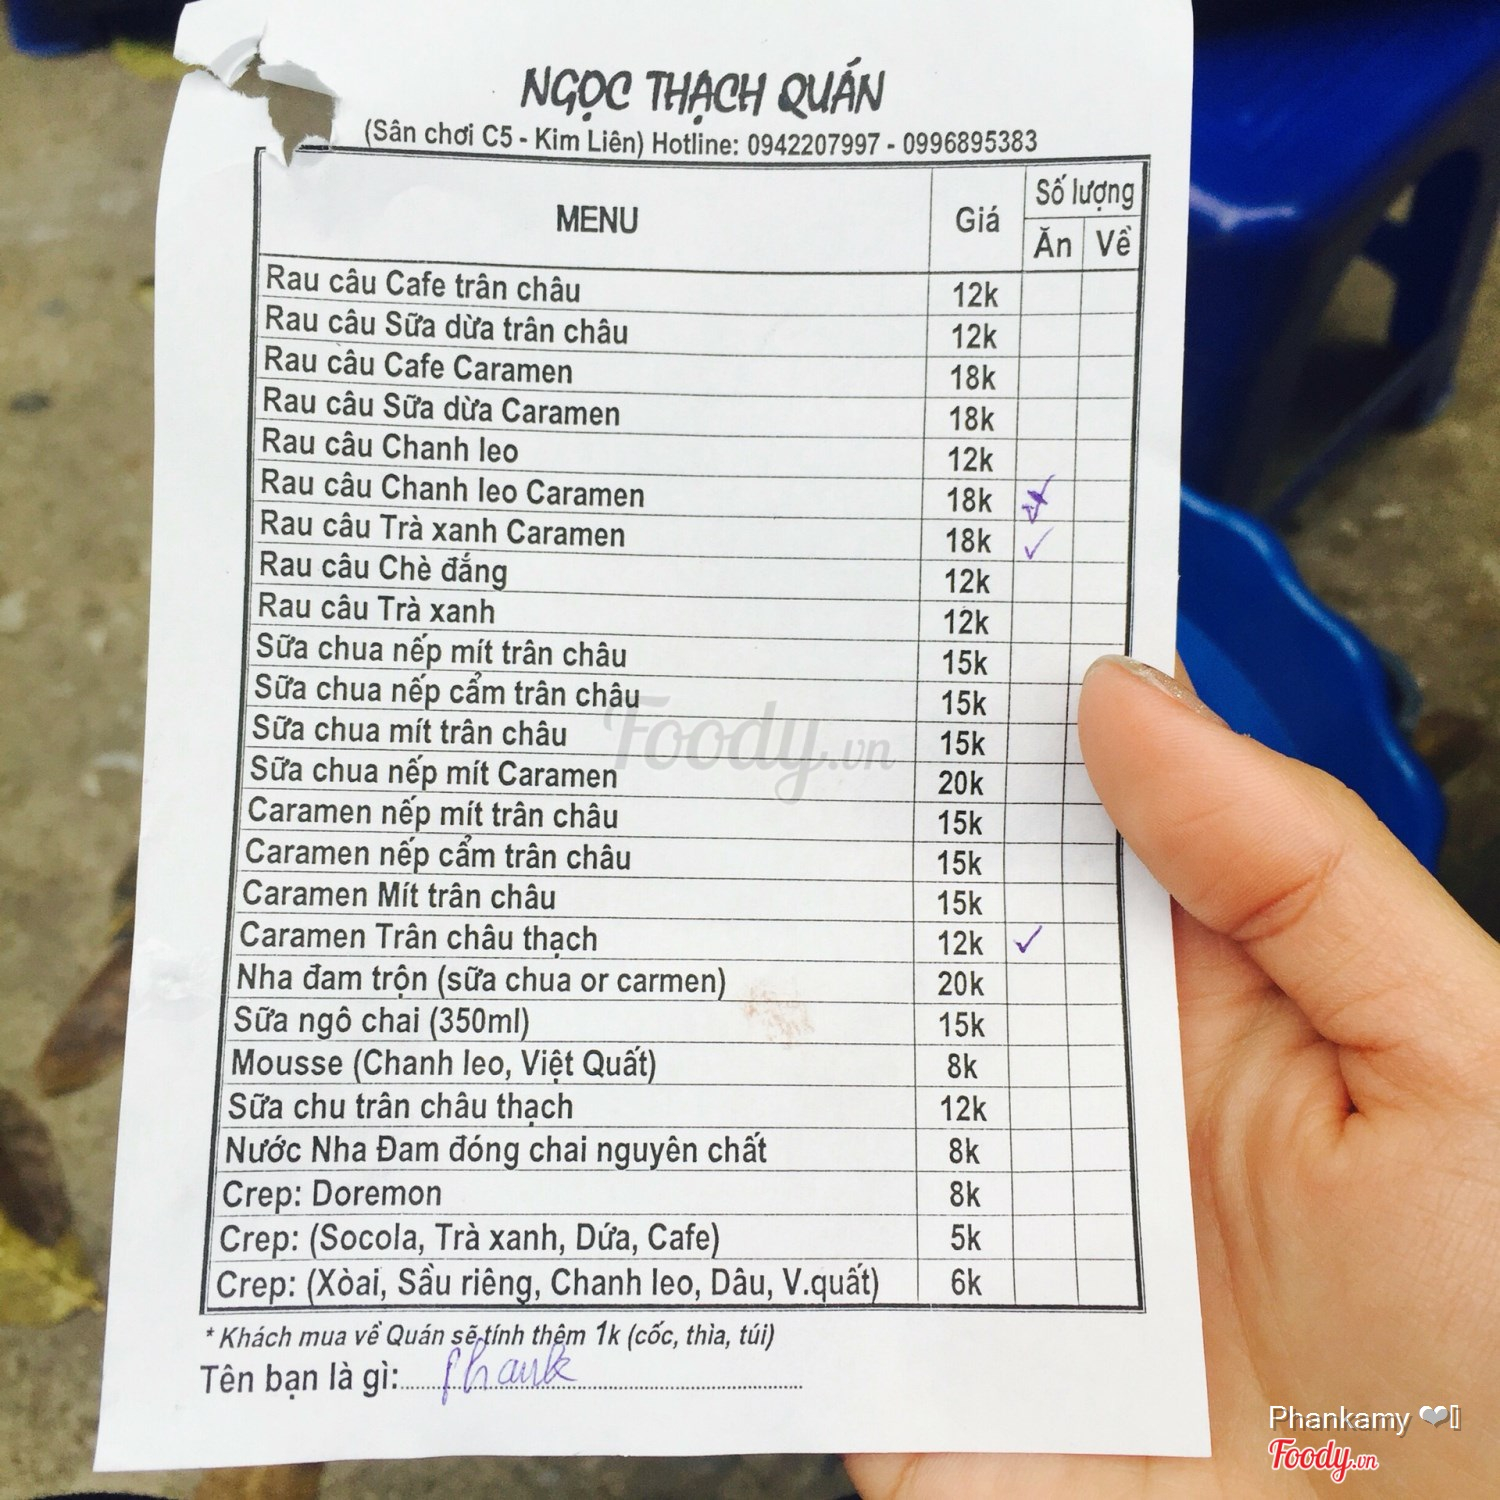 NGỌC THẠCH QUÁN
(Sân chơi C5 - Kim Liên) Hotline: 0942207997 - 0996895383
MENU Giá Số lượng
Ăn Về
Rau câu Cafe trân châu 12k
Rau câu Sữa dừa trân châu 12k
Rau câu Cafe Caramen 18k
Rau câu Sữa dừa Caramen 18k
Rau câu Chanh leo 12k
Rau câu Chanh leo Caramen 18k
Rau câu Trà xanh Caramen 18k ✓
Rau câu Chè đắng 12k
Rau câu Trà xanh 12k
Sữa chua nếp mít trân châu 15k
Sữa chua nếp cẩm trân châu 15k
Sữa chua mít trân châu 15k
Sữa chua nếp mít Caramen 20k
Caramen nếp mít trân châu 15k
Caramen nếp cẩm trân châu 15k
Caramen Mít trân châu 15k
Caramen Trân châu thạch 12k ✓
Nha đam trộn (sữa chua or carmen) 20k
Sữa ngô chai (350ml) 15k
Mousse (Chanh leo, Việt Quất) 8k
Sữa chu trân châu thạch 12k
Nước Nha Đam đóng chai nguyên chất 8k
Crep: Doremon 8k
Crep: (Socola, Trà xanh, Dứa, Cafe) 5k
Crep: (Xòai, Sầu riêng, Chanh leo, Dâu, V.quất) 6k
* Khách mua về Quán sẽ tính thêm 1k (cốc, thìa, túi)
Tên bạn là gì:
Foody.vn
Phankamy
Foody.vn